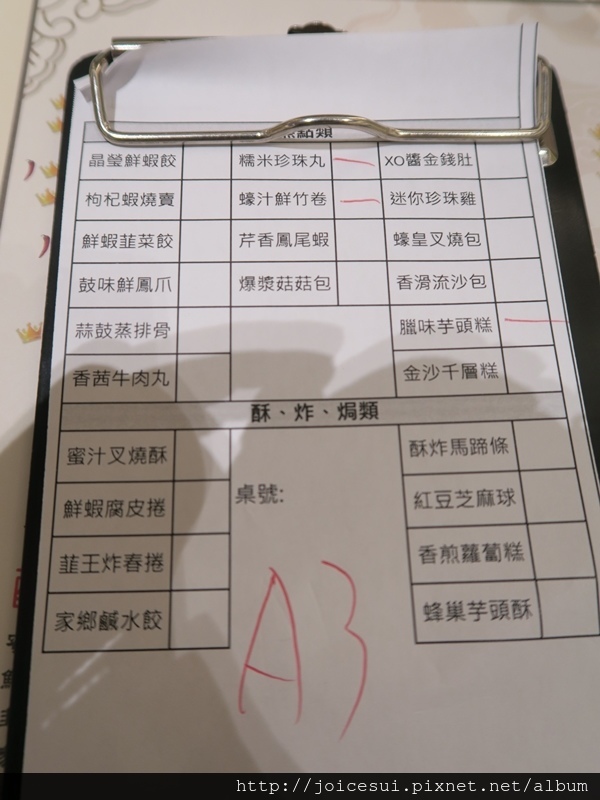 點類
晶瑩鮮蝦餃 糯米珍珠丸 XO醬金錢肚
枸杞蝦燒賣 蠔汁鮮竹卷 迷你珍珠雞
鮮蝦韭菜餃 芹香鳳尾蝦 蠔皇叉燒包
鼓味鮮鳳爪 爆漿菇菇包 香滑流沙包
蒜鼓蒸排骨 臘味芋頭糕
香茜牛肉丸 金沙千層糕
酥、炸、焗類
蜜汁叉燒酥 酥炸馬蹄條
鮮蝦腐皮捲 桌號: 紅豆芝麻球
韮王炸春捲 香煎蘿蔔糕
家鄉鹹水餃 蜂巢芋頭酥
A3
http://joicesui.pixnet.net/album